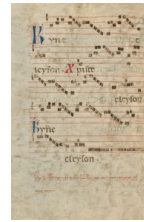 Kyrie
eleyson Xpiste
eleyson
Kyrie
eleyson